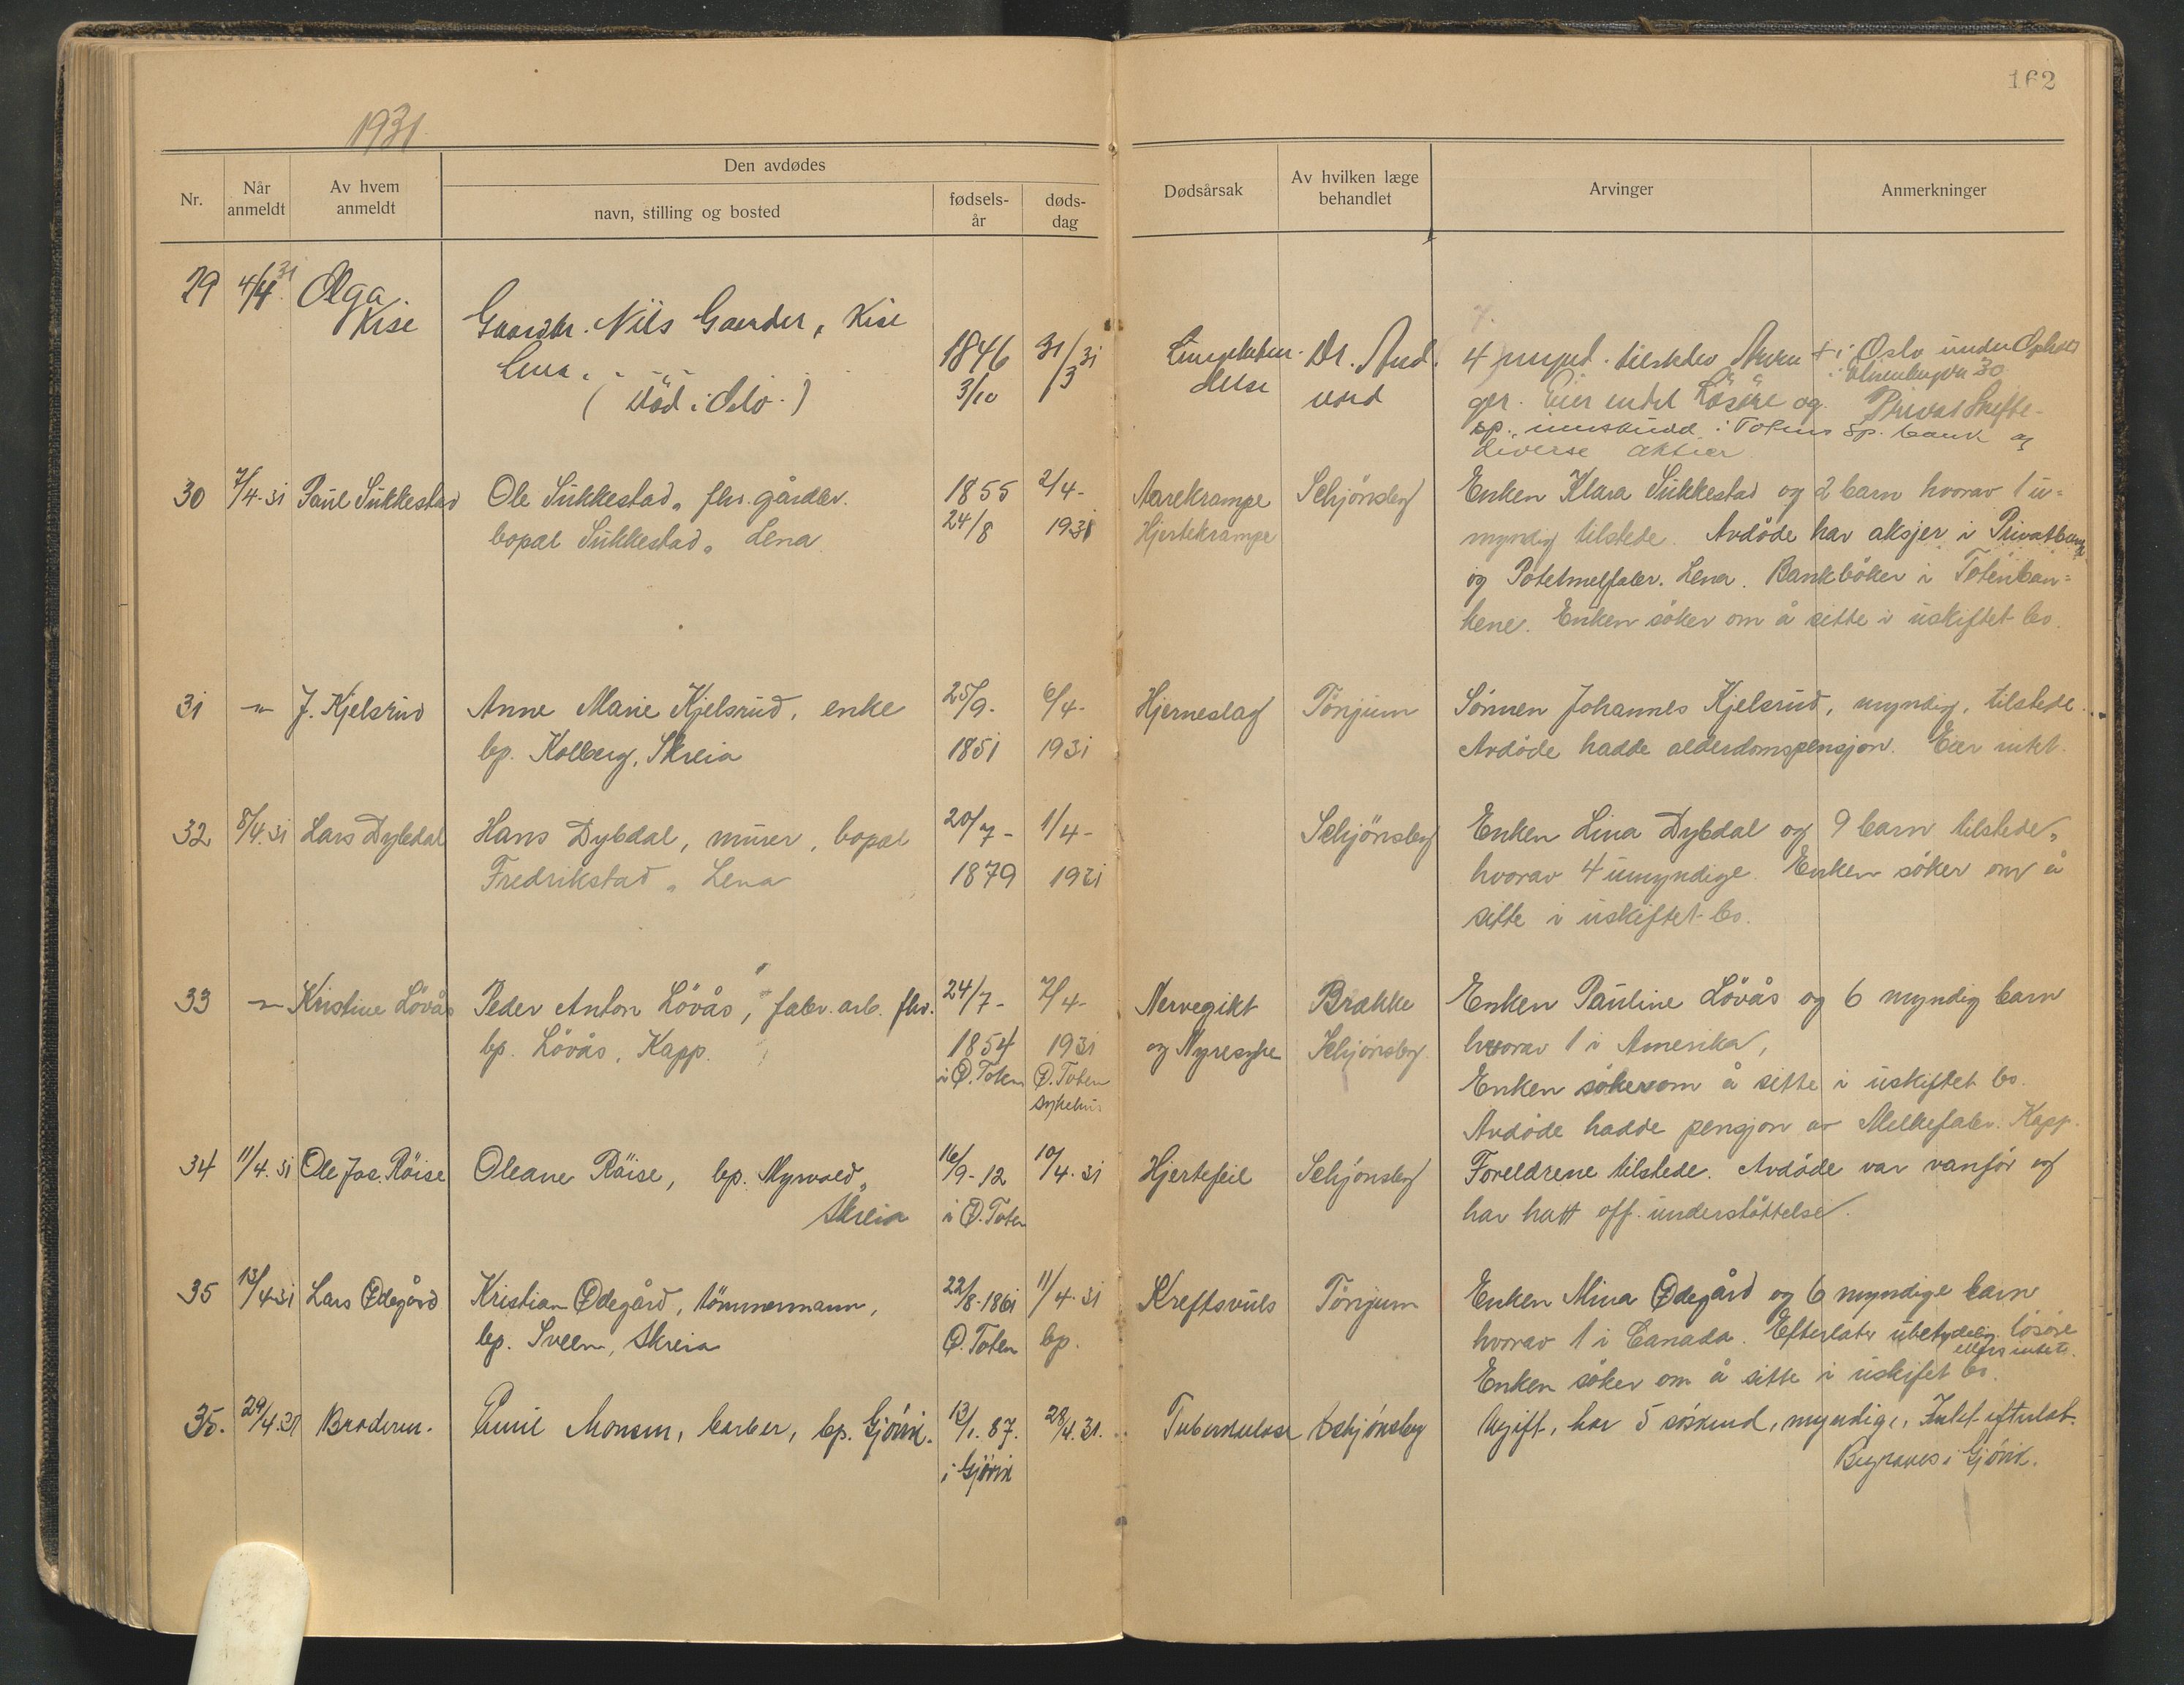 162
1931
Den avdødes
Nr.
Når anmeldt
Av hvem anmeldt
navn, stilling og bosted
fødsels-år
døds-dag
Dødsårsak
Av hvilken læge behandlet
Arvinger
Anmerkninger
29 4/4 31 Olga Kise
Gaardbr. Nils Gaarder, Kise
Lena
(Död i Oslo.)
1846 3/10
31/3 31
Dr.
4 tilstede
Eier endel Løsøre og
sp. innskudd i Totens Sp. bank og
diverse aktier
+ i Oslo under Ophold
Privat Skifte
30 7/4-31 Paul Sukkestad
Ole Sukkestad, fhv. gårdbr.
bopæl Sukkestad, Lena
1855 24/8
2/4- 1931
Aarekrampe
Hjertekrampe
Schjönsby
Enken Klara Sukkestad og 2 barn hvorav 1 u-
myndig tilstede. Avdöde har aksjer i Privatbank
og Potetmelfabr. Lena. Bankböker i Totenban-
kene. Enken söker om å sitte i uskiftet bo.
31 -"- J. Kjelsrud
Anne Marie Kjelsrud, enke
bp. Kolberg, Skreia
25/9- 1851
6/4- 1931
Hjerneslag
Tönjum
Sönnen Johannes Kjelsrud, myndig, tilstede.
Avdöde hadde alderdomspensjon. Eier intet.
32 8/4.31 Lars Dybdal
Hans Dybdal, murer, bopæl
Fredrikstad, Lena
20/7- 1879
1/4- 1931
Schjönsby
Enken Lina Dybdal og 9 barn tilstede,
hvorav 4 umyndige. Enken söker om å
sitte i uskiftet bo.
33 -"- Kristine Lövås
Peder Anton Lövås, fabr. arb. fhv.
bp. Lövås, Kapp.
24/7- 1854
i Ø. Toten
7/4- 1931
Ø. Toten
sykehus
Nervegikt
og Nyresyke
Brække
Schjönsby
Enken Pauline Lövås og 6 myndig barn
hvorav 1 i Amerika,
Enken söker om å sitte i uskiftet bo.
Avdöde hadde pensjon av Melkefabr. Kapp.
34 11/4.31 Ole Jos. Röise
Oleane Röise, bp. Myrvold,
Skreia
16/9-12
i Ø. Toten
10/4.31
Hjertefeil
Schjönsby
Foreldrene tilstede. Avdöde var vanför og
har hatt off. understöttelse.
35 13/4-31 Lars Ødegård
Kristian Ødegård, tömmermann,
bp. Sveen, Skreia
22/8-1861
Ø. Toten
11/4.31
bp.
Kreftsvuls
Tönjum
Enken Mina Ødegård og 6 myndige barn
hvorav 1 i Canada. Efterlater ubetydelig lösöre
ellers intet.
Enken söker om å sitte i uskiftet bo.
35. 29/4.31 Broderen.
Emil Monsen, barber, bp. Gjövik.
13/1.87.
i Gjövik
28/4.31.
Tuberkulose
Schjönsby
Ugift, har 5 söskend, myndige, Intet efterlat.
Begraves i Gjövik.